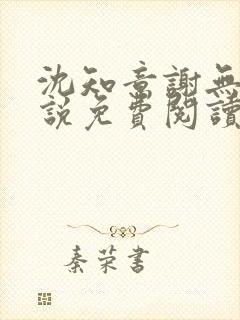 沈知意謝無
說免費閱讀
秦荣書